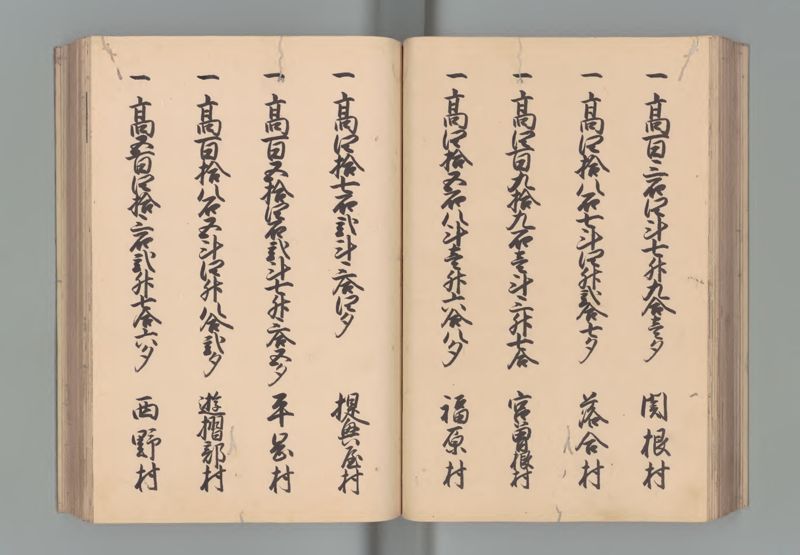 一高百三石四斗七升九合壱夕 関根村
一高四拾八石七斗四升弐合七夕 落合村
一高四百九拾九石壱斗三升七合 宮曽根村
一高四拾五石八斗壱升六合八夕 福原村
一高四拾七石弐斗三合四夕 提興屋村
一高百五拾四石弐斗七升三合五夕 平岡村
一高百拾八石五斗四升八合弐夕 遊摺部村
一高五百四拾三石弐升七合六夕 西野村